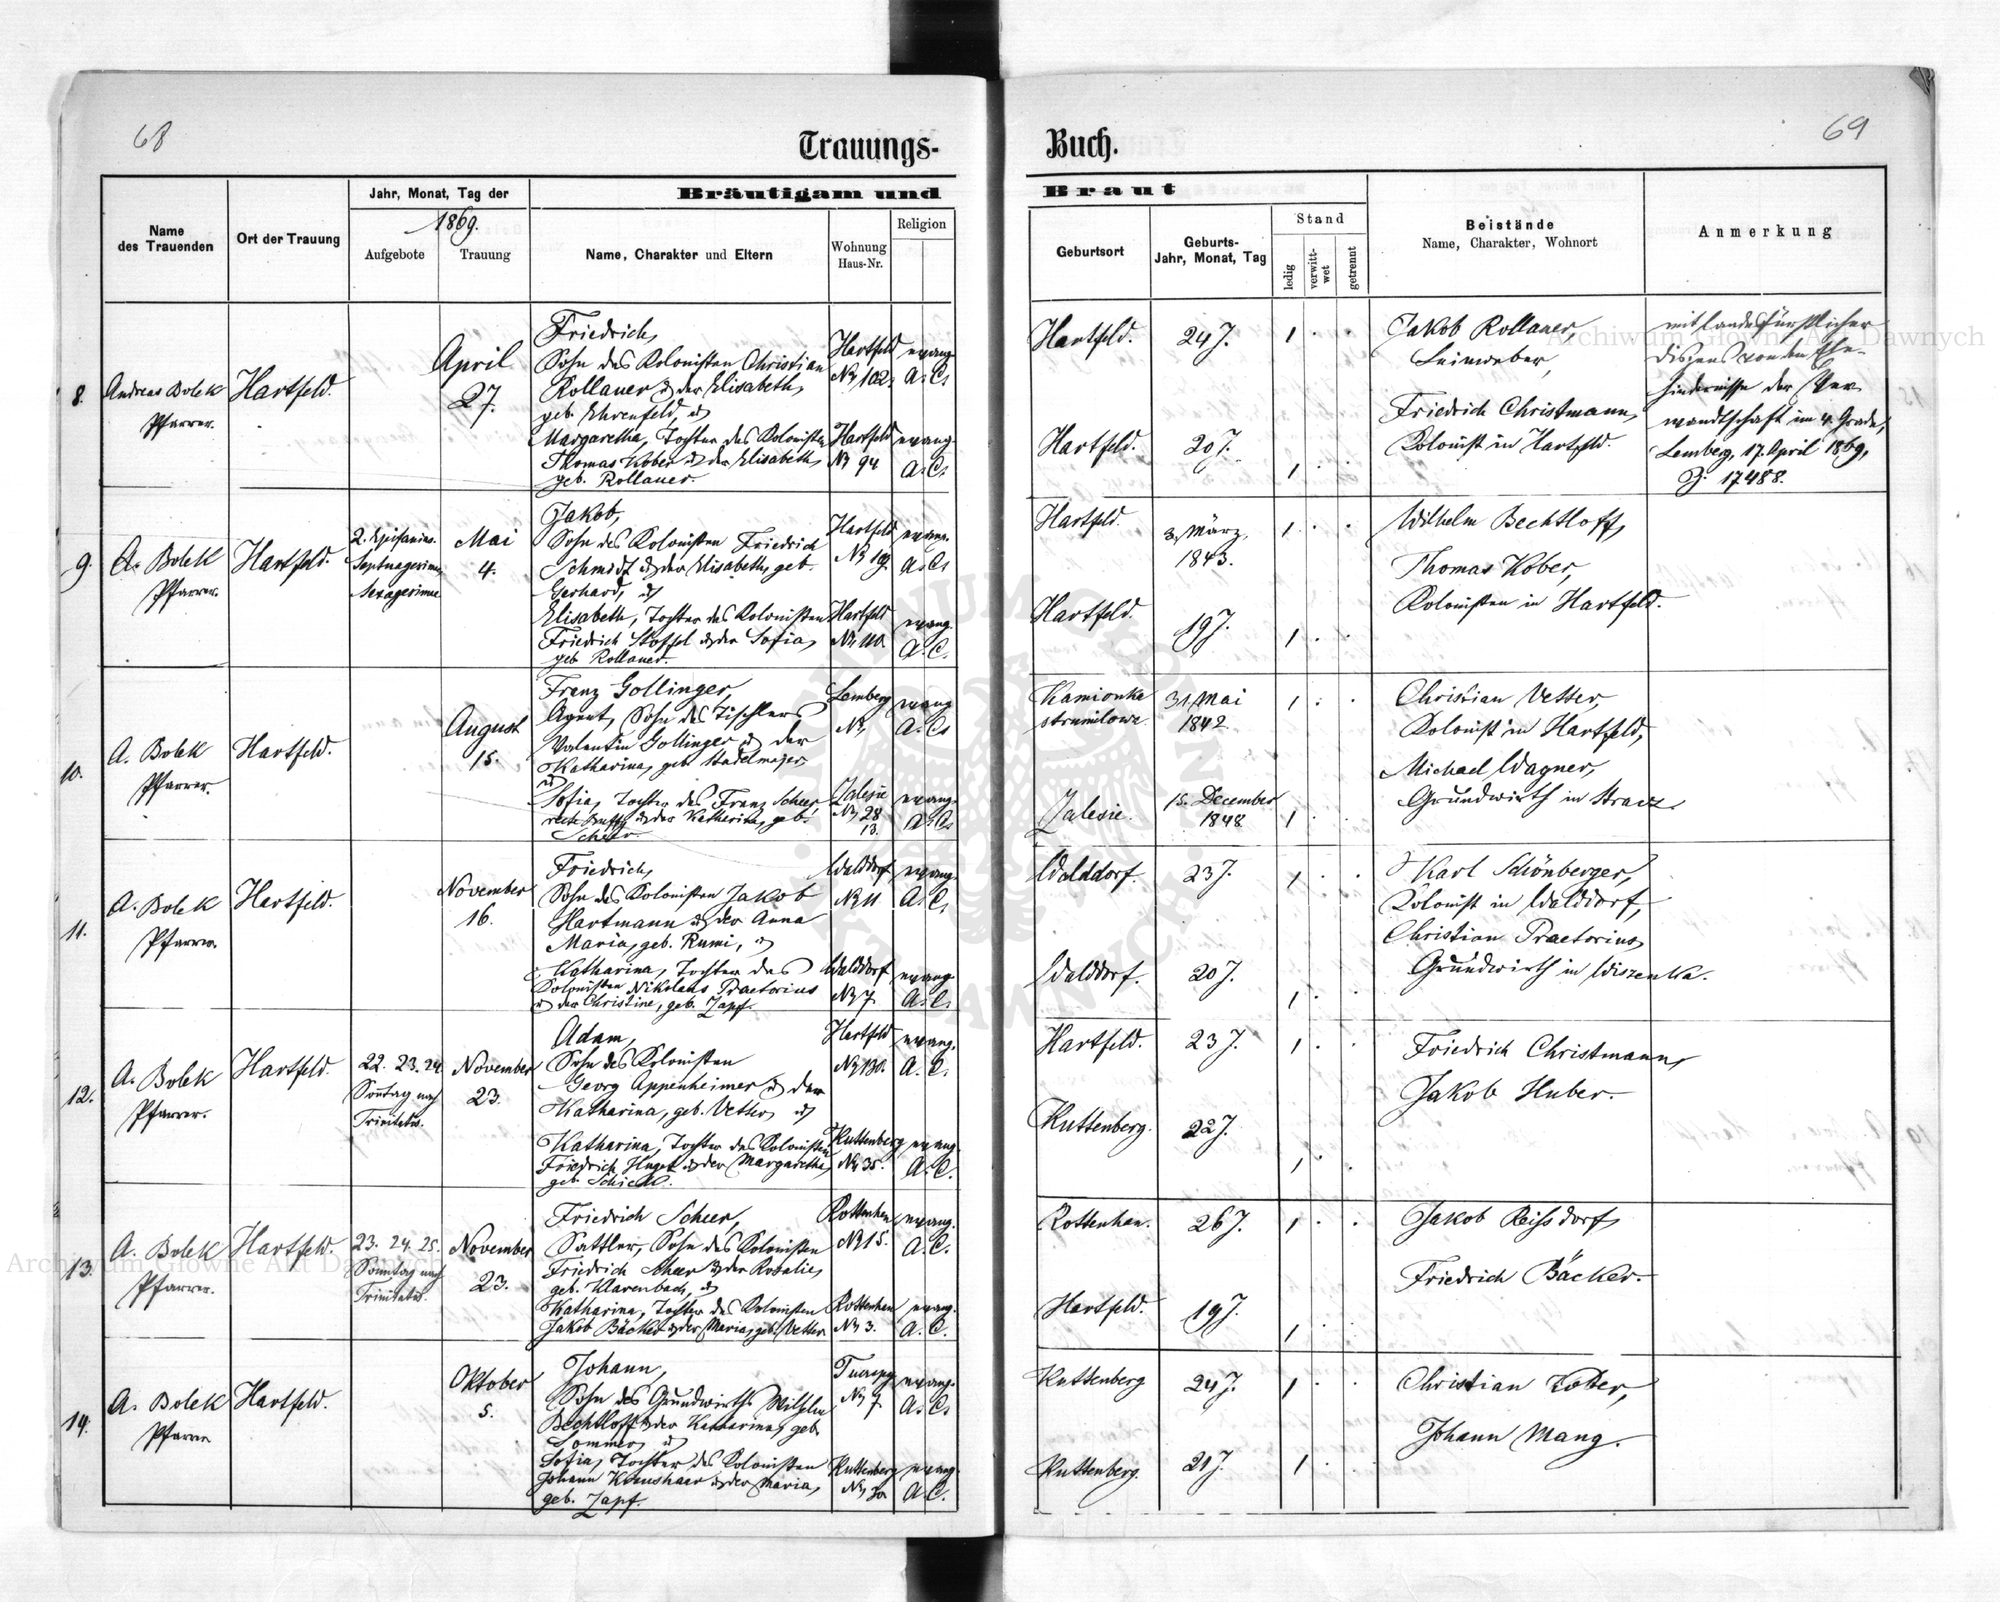 68
Trauungs-
Buch.
69
Name
des Trauenden
Ort der Trauung
Jahr, Monat, Tag der
1869.
Aufgebote
Trauung
Bräutigam und
Name, Charakter und Eltern
Wohnung
Haus-Nr.
Religion
Braut
Geburtsort
Geburts-
Jahr, Monat, Tag
Stand
ledig
verwitt-
wet
getrennt
Beistände
Name, Charakter, Wohnort
Anmerkung
8.
Andreas Bolek
Pfarrer.
Hartfeld.
April
27.
Friedrich,
Sohn des Kolonisten Christian
Rollauer & der Elisabeth,
geb. Ehrenfeld, &
Margaretha, Tochter des Kolonisten
Thomas Kober & der Elisabeth,
geb. Rollauer.
Hartfeld
Nr 102.
evang.
A. C.
Hartfeld
Nr 94
evang.
A. C.
Hartfeld.
24 J.
1 . .
Hartfeld.
20 J.
1 . .
Jakob Rollauer,
Leinweber,
Friedrich Christmann,
Kolonist in Hartfeld.
mit landesfürstlicher
Dispens von dem Ehe-
hindernisse der Ver
wandtschaft im 4. Grade,
Lemberg, 17. April 1869,
Z. 17488.
9.
A. Bolek
Pfarrer.
Hartfeld.
2. Epifanias.
Septuagesimae,
Sexagesimae
Mai
4.
Jakob,
Sohn des Kolonisten Friedrich
Schmidt & der Elisabeth, geb.
Gerhard, &
Elisabeth, Tochter des Kolonisten
Friedrich Stoffel & der Sofia,
geb. Rollauer.
Hartfeld
Nr 19.
evang.
A. C.
Hartfeld
Nr 110.
evang.
A. C.
Hartfeld.
3. März,
1843.
1 . .
Hartfeld.
19 J.
1 . .
Wilhelm Bechtloff,
Thomas Kober,
Kolonisten in Hartfeld.
10.
A. Bolek
Pfarrer.
Hartfeld.
August
15.
Franz Gollinger,
Agent, Sohn des Tischlers
Valentin Gollinger & der
Katharina, geb. Stadelmajer,
&
Sofia, Tochter des Franz Scheer,
& der Katharina, geb.
Lemberg
Nr,
evang
A. C.
Zalesie
Nr 28
13.
evang.
A. C.
Kamionka
strumilowa
31. Mai
1842
1 . .
Zalesie.
15. December
1848
1 . .
Christian Vetter,
Kolonist in Hartfeld,
Michael Wagner,
Grundwirth in
11.
A. Bolek
Pfarrer.
Hartfeld.
November
16.
Friedrich,
Sohn des Kolonisten Jakob
Hartmann & der Anna
Maria, geb. Rumi, &
Katharina, Tochter des
Kolonisten Nikolaus Praetorius
& der Christine, geb. Zapf.
Walddorf
Nr 11
evang.
A. C.
Walddorf
Nr 7
evang.
A. C.
Walddorf.
23 J.
1 . .
Walddorf.
20 J.
1 . .
Karl Schönberger,
Kolonist in Walddorf,
Christian Praetorius,
Grundwirth in Wiszenka.
12.
A. Bolek
Pfarrer.
Hartfeld.
22. 23. 24
Sonntag nach
Trinitatis.
November
23.
Adam,
Sohn des Kolonisten
Georg Appenheimer & der
Katharina, geb. Vetter, &
Katharina, Tochter des Kolonisten
Friedrich Huget & der Margaretha,
geb. Schick.
Hartfeld
Nr 130.
evang.
A. C.
Kuttenberg
Nr 35.
evang.
A. C.
Hartfeld.
23 J.
1 . .
Kuttenberg.
22 J.
1 . .
Friedrich Christmann,
Jakob Huber.
13.
A. Bolek
Pfarrer.
Hartfeld.
23. 24. 25.
Sonntag nach
Trinitatis.
November
23.
Friedrich Scheer,
Sattler, Sohn des Kolonisten
Friedrich Scheer & der Rosalie,
geb. Klarenbach, &
Katharina, Tochter des Kolonisten
Jakob Bäcker & der Maria, geb. Vetter
Rottenhan
Nr 15.
evang.
A. C.
Rottenhan
Nr 3.
evang.
A. C.
Rottenhan.
26 J.
1 . .
Hartfeld.
19 J.
1 . .
Jakob Reissdorf,
Friedrich Bäcker.
14.
A. Bolek
Pfarrer
Hartfeld.
Oktober
5.
Johann,
Sohn des Grundwirths Wilhelm
Bechtloff & der Katharina, geb.
Sommer, &
Sofia, Tochter des Kolonisten
Johann Kraushaar & der Maria,
geb. Zapf.
Nr 7
evang.
A. C.
Kuttenberg
Nr 30
evang.
A. C.
Kuttenberg
24 J.
1 . .
Kuttenberg.
21 J.
1 . .
Christian Kober,
Johann Mang.
Archiwum Główne Akt Dawnych
Archiwum Główne Akt Dawnych